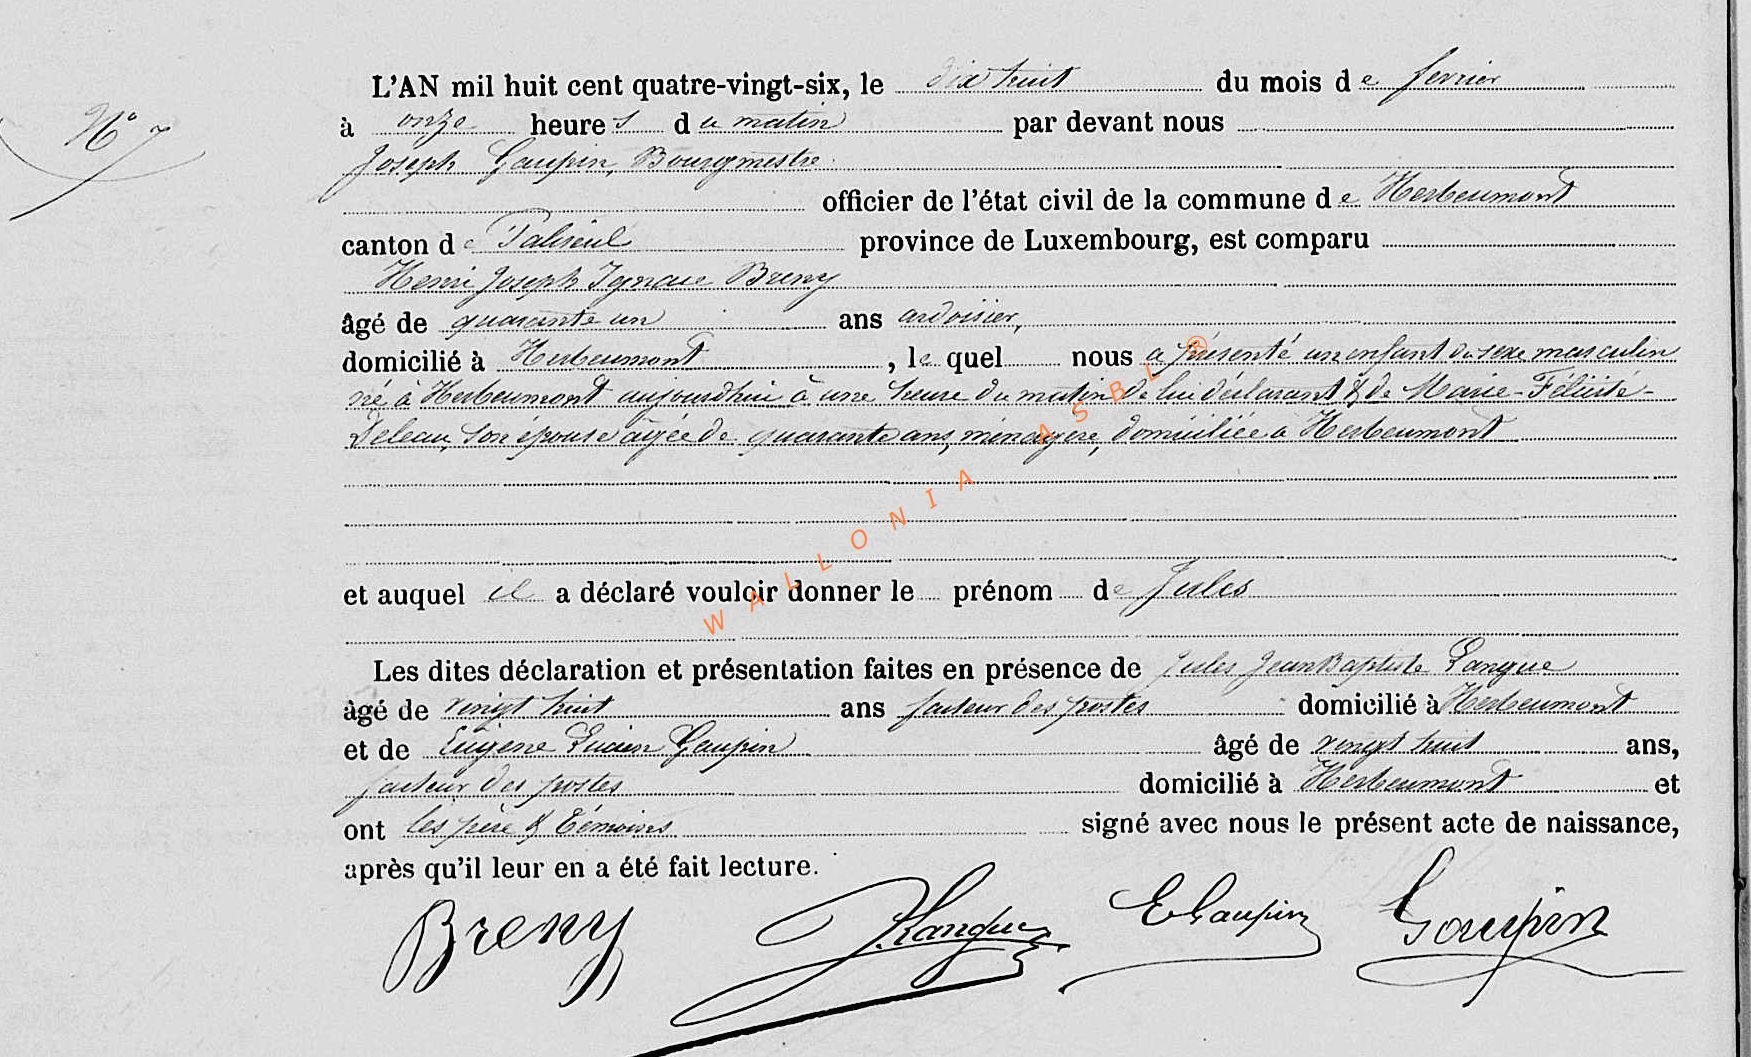 L'AN mil huit cent quatre-vingt-six, le dix huit du mois de fevrier
N° 7
à onze heures du matin par devant nous
Joseph Gaupin, Bourgmestre
officier de l'état civil de la commune de Herbeumont
canton de Paliseul province de Luxembourg, est comparu
Henri Joseph Ignace Breny
âgé de quarante un ans ardoisier,
domicilié à Herbeumont, le quel nous a présenté un enfant du sexe masculin
né à Herbeumont aujourdhui à une heure du matin de lui déclarant & de Marie-Félicité-
Deleau, son épouse agée de quarante ans, ménagère, domiciliée à Herbeumont
et auquel il a déclaré vouloir donner le prénom de Jules
Les dites déclaration et présentation faites en présence de Jules Jean Baptiste Langue
âgé de vingt huit ans facteur des postes domicilié à Herbeumont
et de Eugène Lucien Gaupin âgé de vingt huit ans,
facteur des postes domicilié à Herbeumont et
ont les père & témoins signé avec nous le présent acte de naissance,
après qu'il leur en a été fait lecture.
Breny J. Langue E Gaupin Gaupin
WALLONIA ASBL ®